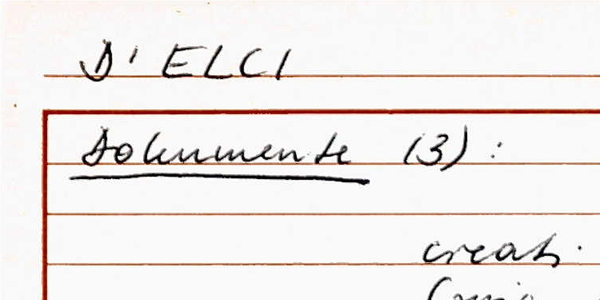 D'ELCI
Dokumente (3):
creat.